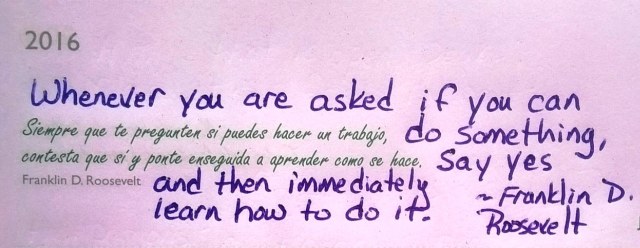 2016
Whenever you are asked if you can
Siempre que te pregunten si puedes hacer un trabajo,
do something,
contesta que sí y ponte enseguida a aprender como se hace.
say yes
Franklin D. Roosevelt
and then immediately
learn how to do it.
~ Franklin D.
Roosevelt